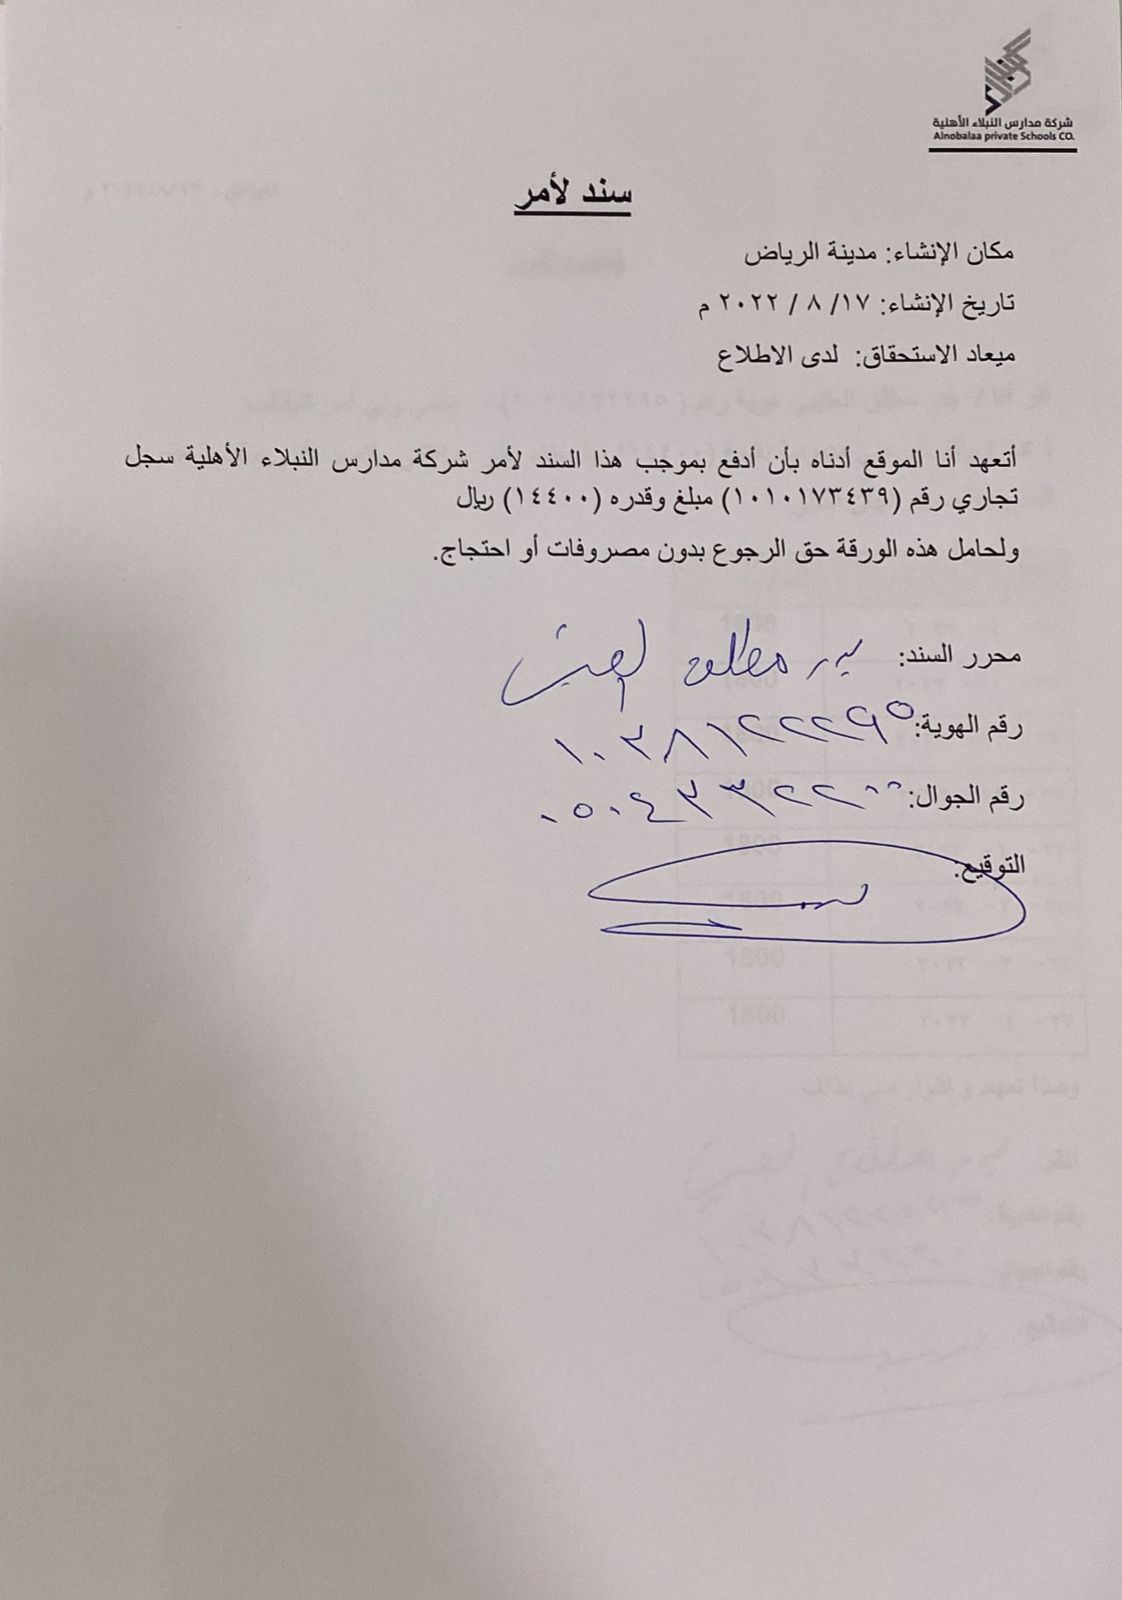 شركة مدارس النبلاء الأهلية
Alnobalaa private Schools CO.
سند لأمر
مكان الإنشاء: مدينة الرياض
تاريخ الإنشاء: ١٧/ ٨ / ٢٠٢٢ م
ميعاد الاستحقاق: لدى الاطلاع
أتعهد أنا الموقع أدناه بأن أدفع بموجب هذا السند لأمر شركة مدارس النبلاء الأهلية سجل
تجاري رقم (١٠١٠١٧٣٤٣٩) مبلغ وقدره (١٤٤٠٠) ريال
ولحامل هذه الورقة حق الرجوع بدون مصروفات أو احتجاج.
محرر السند: بدر مطلق
رقم الهوية: ١٠٣٨١٢٢٢٩٥
رقم الجوال: ٠٥٠٤٣٣٢٢٠٠
التوقيع: